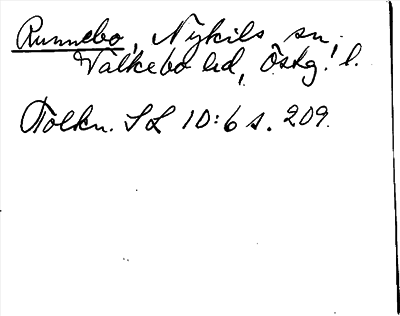 Runnebo, Nykils sn,
Valkebo hd, Östg. l.
Tolkn. SL 10:6 s. 209.